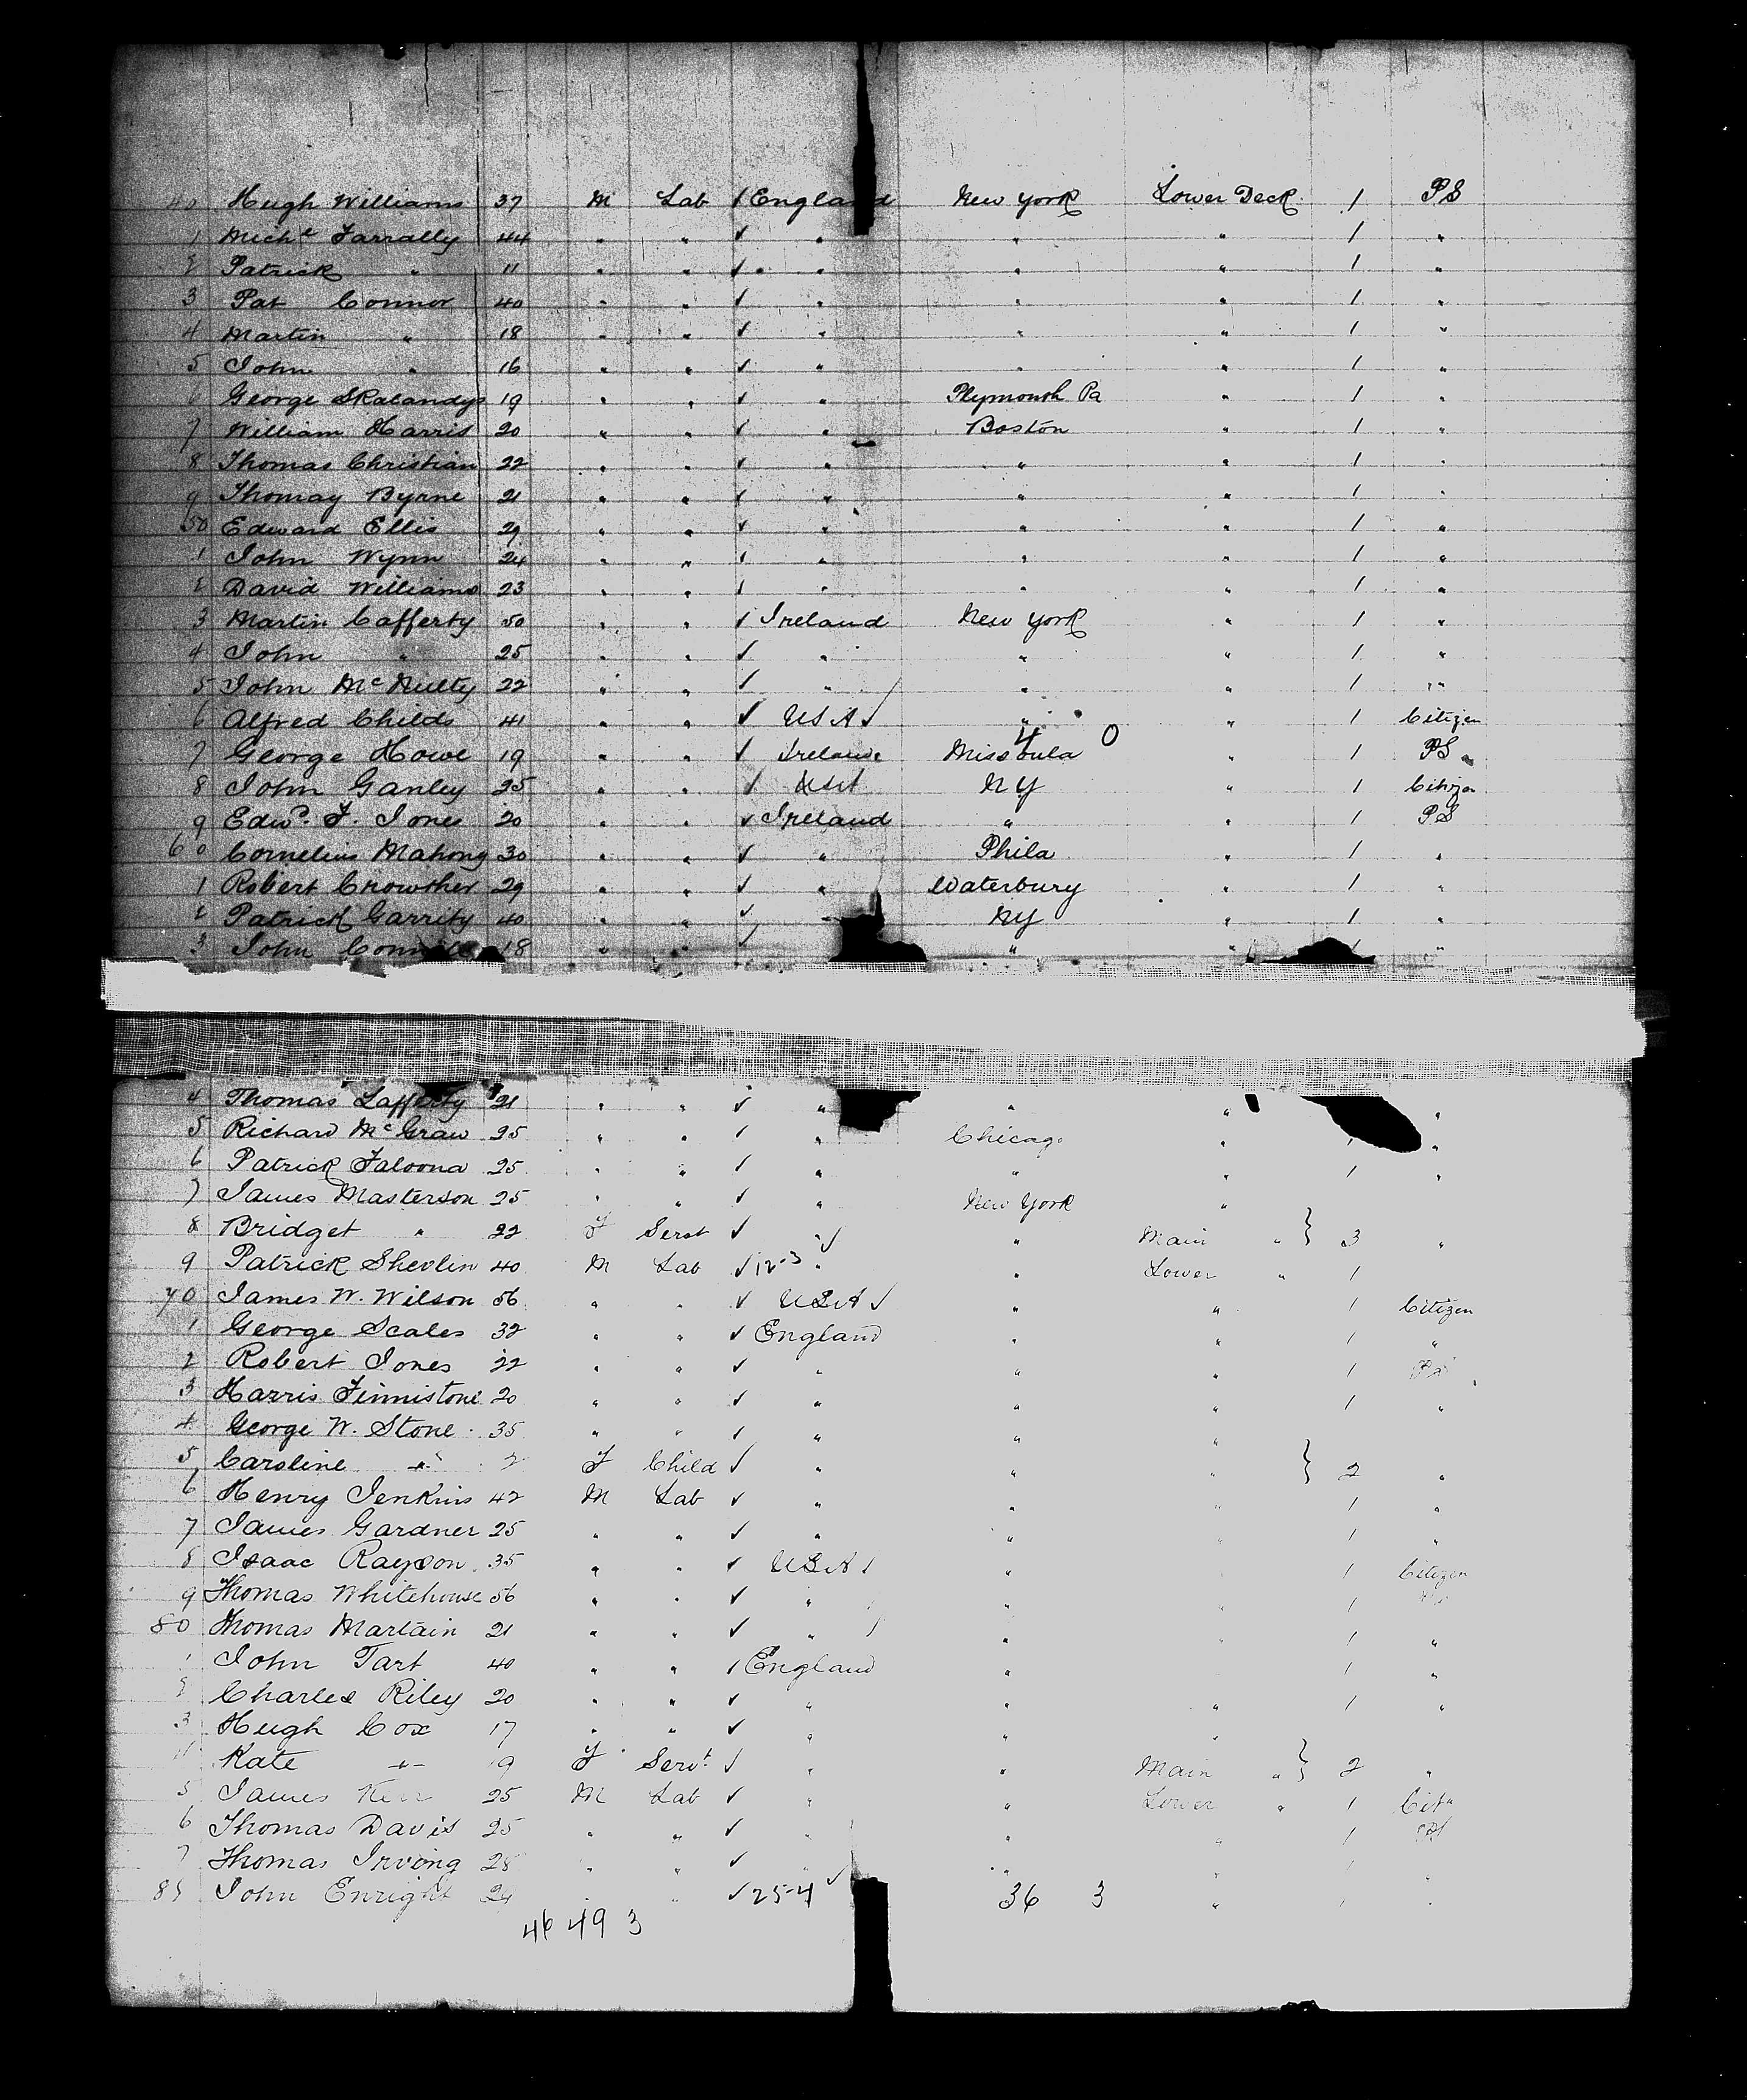 40 Hugh Williams 37 M Lab ✓ England New York Lower Deck 1 PS
1 Michl Farrally 44 " " ✓ " " " 1 "
2 Patrick " 11 " " ✓ " " " 1 "
3 Pat Connor 40 " " ✓ " " " 1 "
4 Martin " 18 " " ✓ " " " 1 "
5 John " 16 " " ✓ " " " 1 "
6 George Skalandys 19 " " ✓ " Plymouth Pa " 1 "
7 William Harris 20 " " ✓ " Boston " 1 "
8 Thomas Christian 22 " " ✓ " " " 1 "
9 Thomas Byrne 21 " " ✓ " " " 1 "
50 Edward Ellis 29 " " ✓ " " " 1 "
1 John Wynn 24 " " ✓ " " " 1 "
2 David Williams 23 " " ✓ " " " 1 "
3 Martin Cafferty 50 " " ✓ Ireland New York " 1 "
4 John " 25 " " ✓ " " " 1 "
5 John McNulty 22 " " ✓ " " " 1 "
6 Alfred Childs 41 " " ✓ USA ✓ " " 1 Citizen
4 0
7 George Howe 19 " " ✓ Ireland Missoula " 1 PS
8 John Ganley 25 " " ✓ USA NY " 1 Citizen
9 Edwd. F. Jones 20 " " ✓ Ireland " " 1 PS
60 Cornelius Mahony 30 " " ✓ " Phila " 1 "
1 Robert Crowther 29 " " ✓ " Waterbury " 1 "
2 Patrick Garrity 40 " " ✓ " NY " 1 "
3 John 18 " " ✓ " " 1 "
4 Thomas Lafferty 21 " " ✓ " " " "
5 Richard McGraw 25 " " ✓ " Chicago " 1 "
6 Patrick Faloona 25 " " ✓ " " " 1 "
7 James Masterson 25 " " ✓ " New York "
8 Bridget " 22 F Servt ✓ " ✓ " Main " } 3 "
9 Patrick Shevlin 40 M Lab ✓ 12-3 " " Lower " 1
70 James W. Wilson 56 " " ✓ USA ✓ " " 1 Citizen
1 George Scales 32 " " ✓ England " " 1 "
2 Robert Jones 22 " " ✓ " " " 1 PS
3 Harris Finnistone 20 " " ✓ " " " 1 "
4 George W. Stone 35 " " ✓ " " "
5 Caroline " 2 F Child ✓ " " " } 2 "
6 Henry Jenkins 42 M Lab ✓ " " " 1 "
7 James Gardner 25 " " ✓ " " " 1 "
8 Isaac Rayson 35 " " ✓ USA ✓ " 1 Citizen
9 Thomas Whitehouse 56 " " ✓ " " " 1
80 Thomas Martain 21 " " ✓ " " " 1 "
1 John Tart 40 " " ✓ England " 1 "
2 Charles Riley 20 " " ✓ " " " 1 "
3 Hugh Cox 17 " " ✓ " " "
4 Kate " 19 F Servt ✓ " " Main " } 2 "
5 James Kerr 25 M Lab ✓ " " Lower " 1 Citn
6 Thomas Davis 25 " " ✓ " " " 1 PS
7 Thomas Irving 28 " " ✓ " " " 1 "
88 John Enright 24 " " ✓ 25-4 ✓ 36 3 " 1 "
46 49 3